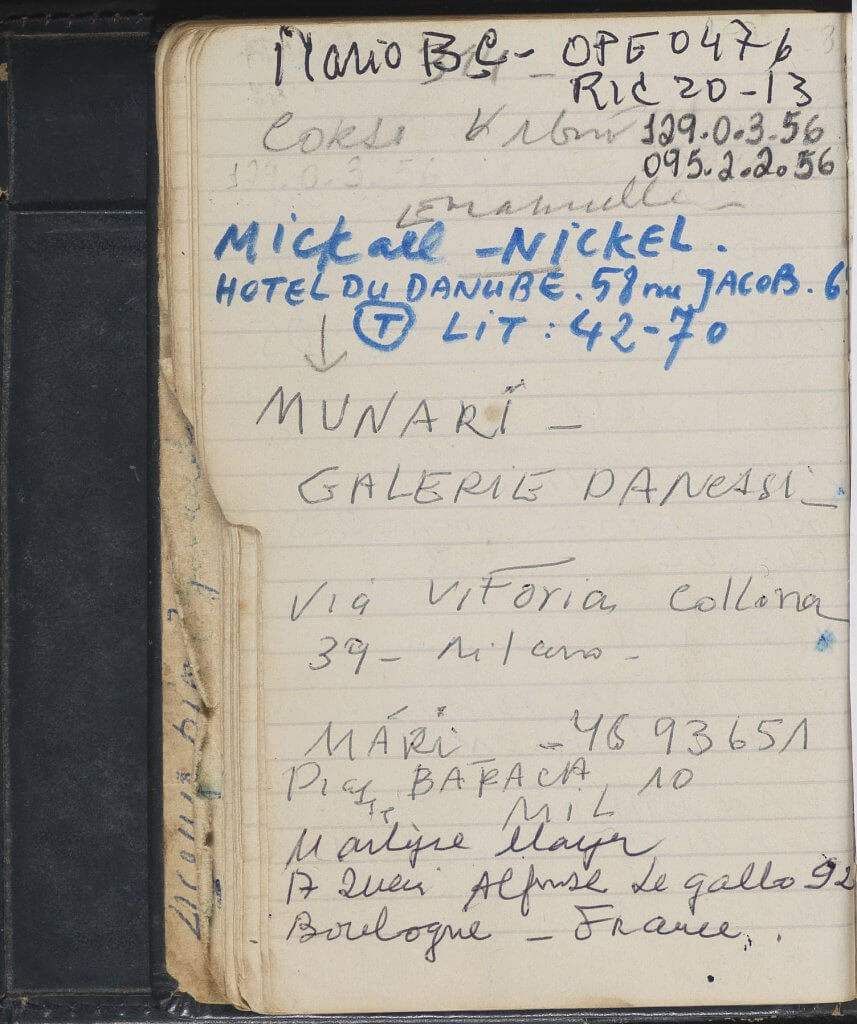 Mario BC - OPE 0476
RIC 20-13
129.0.3.56
095.2.2.56
Mickael - NICKEL.
HOTEL DU DANUBE. 58 rue JACOB. 6
T LIT : 42-70
MUNARI -
GALERIE DANESI -
Via ViTToria Collona
39 - Milano -
MARI - 46 93651
BARACA 10
MIL
Marlyse Mayer
17 Quai Alfonse Le gallo 92
Boulogne - France.